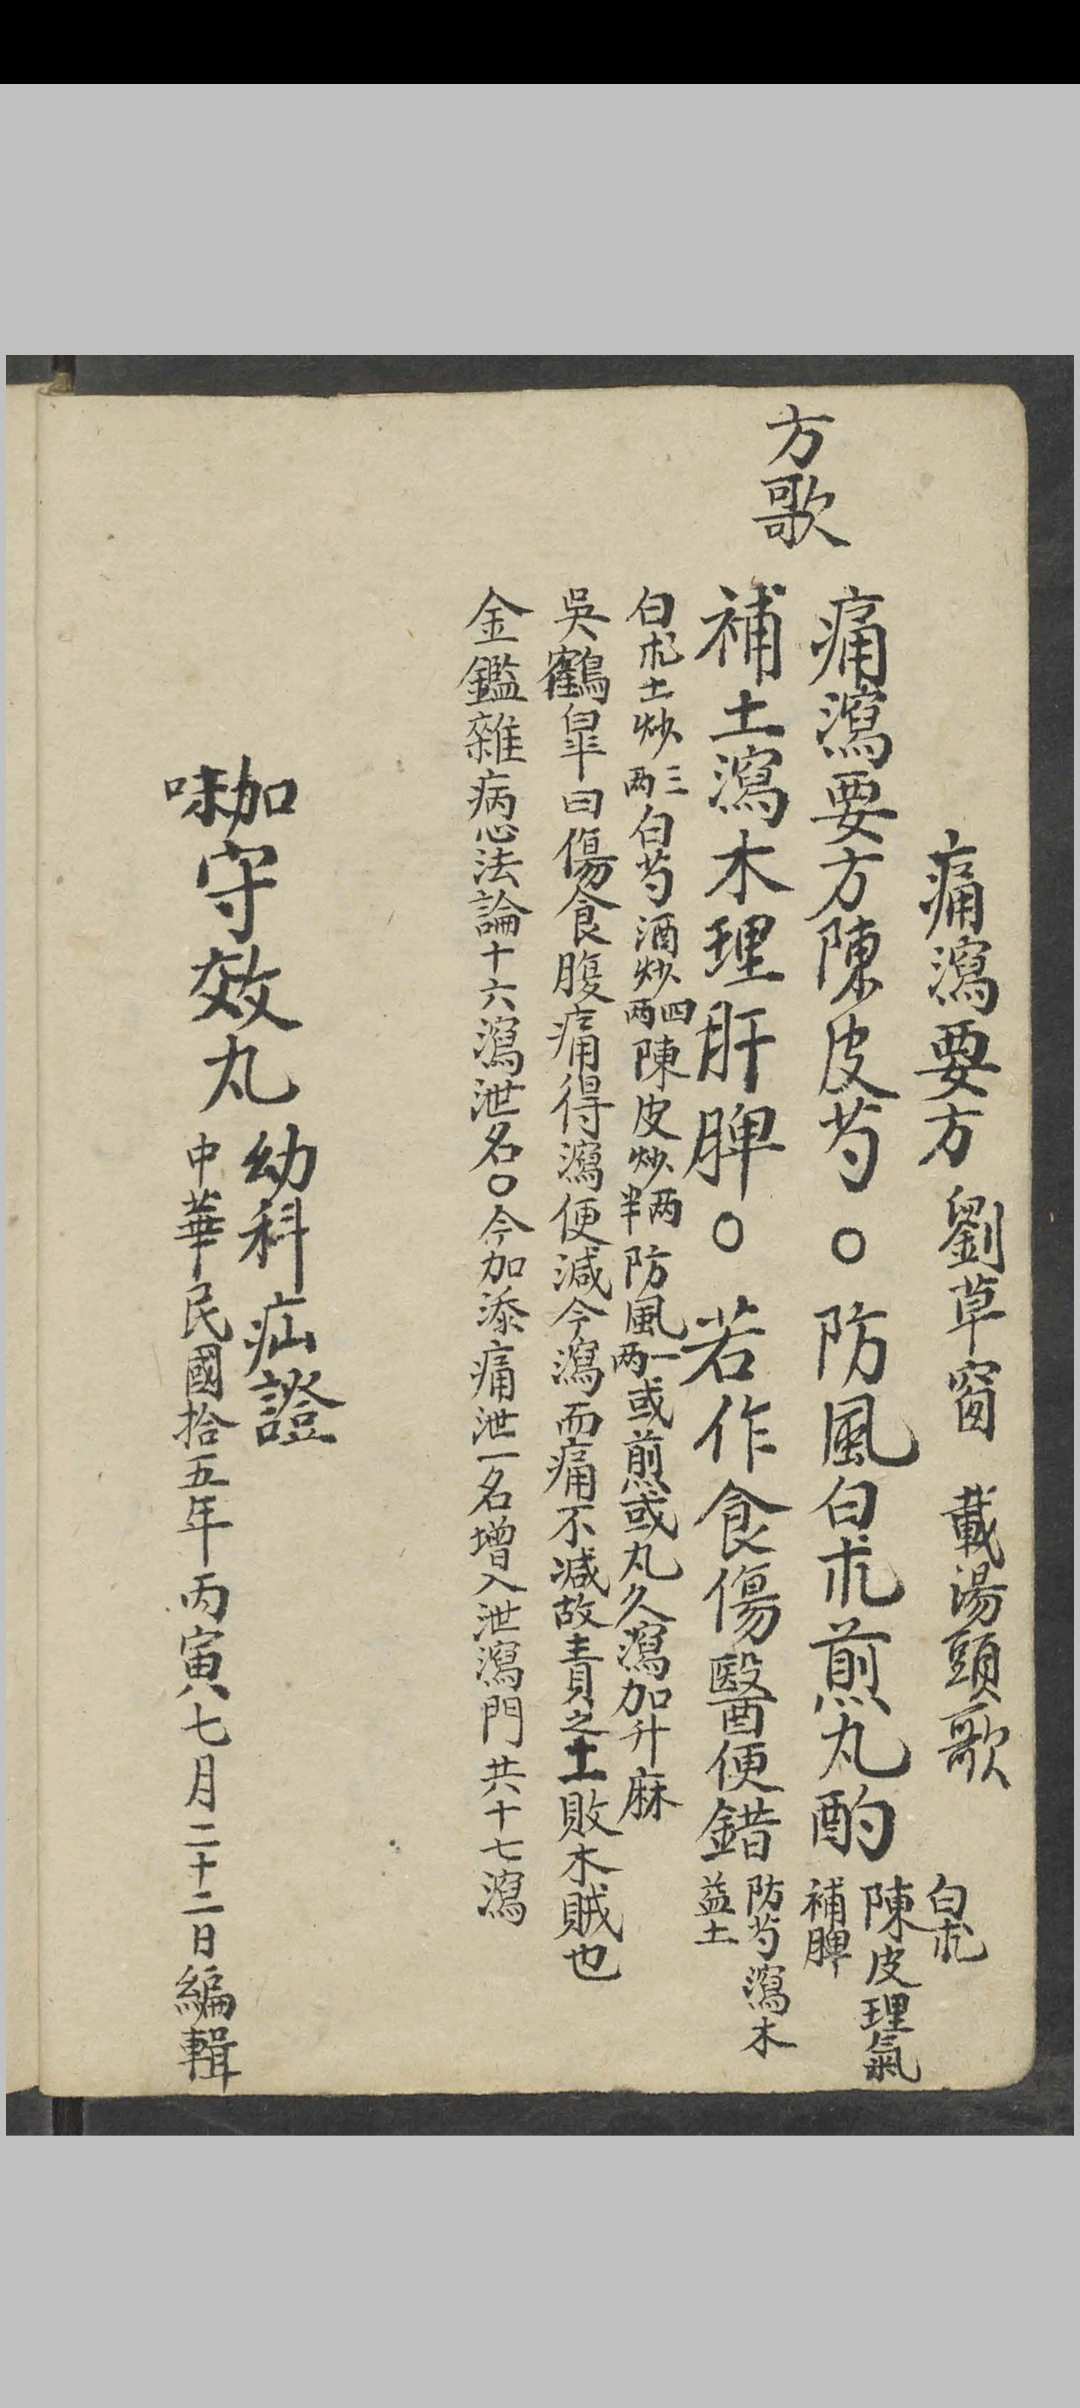 痛瀉要方 劉草窗 載湯頭歌
方歌
痛瀉要方陳皮芍○防風白朮煎丸酌 白朮補脾 陳皮理氣
補土瀉木理肝脾○若作食傷醫便錯 防芍瀉木益土
白朮土炒三兩白芍酒炒四兩陳皮炒兩半防風一兩或煎或丸久瀉加升麻
吳鶴皐曰傷食腹痛得瀉便減今瀉而痛不減故責之土敗木賊也
金鑑雜病心法論十六瀉泄名○今加添痛泄一名增入泄瀉門共十七瀉
加味守效丸 幼科疝證
中華民國拾五年丙寅七月二十二日編輯